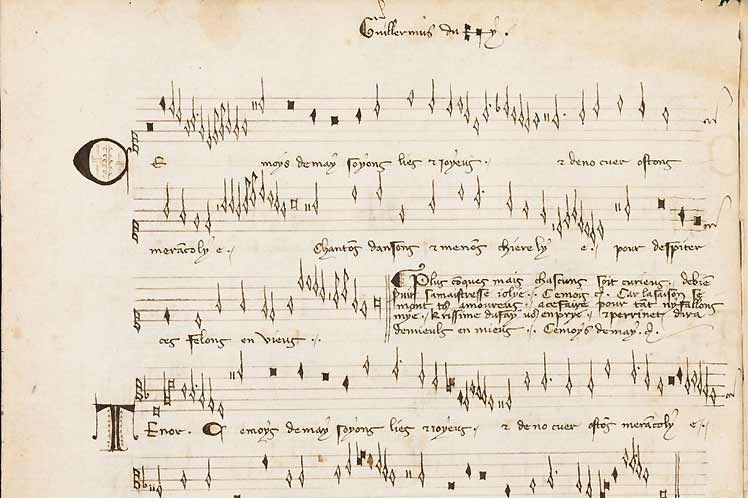 Guillermus du fay.
Ce moys de may soyons lies et joyeus. et de no cuer ostons
merancoly e. Chantons dansons et menons chiere ly e. pour despiter
ces felons en vieus.
Plus cōques mais chascuns soit curieus. de bien
s̄uir sa maistresse jolye. Ce mois et̄. Car la saison se
mont to9 amoureus. a ce faire pour tāt ny fallons
mye. Krissime du fay vo9 en prye. et perrinet dira
de mieuls en mieus. Ce moys de may. et̄.
Tenor. Ce moys de may soyons lies et joyeus. et de no cuer ostōs merācoly e.